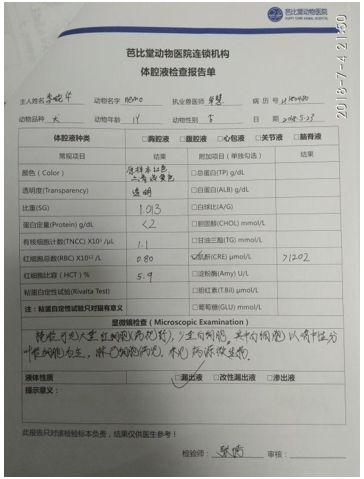 芭比堂动物医院
2018-7-4 21:50
芭比堂动物医院连锁机构
体腔液检查报告单
主人姓名 动物名字 执业兽医师 病历号
动物品种 犬 动物年龄 1Y 动物性别 日期
体腔液种类 □胸腔液 □腹腔液 □心包液 □关节液 □脑脊液
常规项目 结果 附加项目(单独勾选) 结果
颜色(Color) □总蛋白(TP) g/dL
透明度(Transparency) 透明 □白蛋白(ALB) g/dL
比重(SG) 1.013 □白球比(A/G)
蛋白定量(Protein) g/dL <2 □胆固醇(CHOL) mmol/L
有核细胞计数(TNCC) X10⁹ /μL 1.1 □甘油三酯(TG) mmol/L
红细胞总数(RBC) X10¹² /L 0.80 肌酐(CRE) μmol/L 71202
红细胞比容(HCT) % 5.9 □淀粉酶(Amy) U/L
粘蛋白定性试验(Rivalta Test) □胆红素(T.Bil) μmol/L
注:粘蛋白定性试验只对猫有意义 □葡萄糖(GLU) mmol/L
显微镜检查(Microscopic Examination)
镜检可见大量红细胞 少量白细胞,其中白细胞以嗜中性分
叶核细胞为主,淋巴细胞 未见病原微生物.
液体性质 □漏出液 □改性漏出液 □渗出液
提示意义:
此报告只对该检验标本负责,结果仅供医生参考!
检验师: 审核: